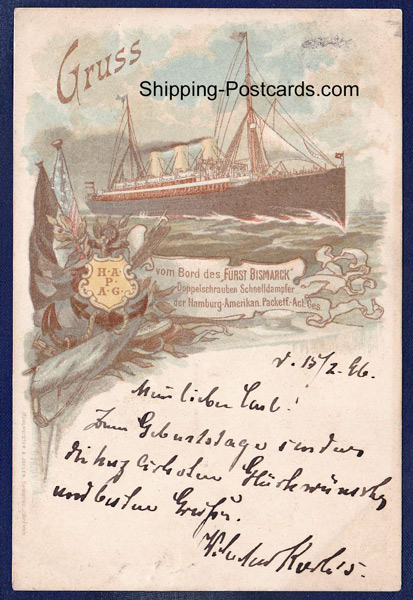 Gruss
Shipping-Postcards.com
H·A·
P·
A·G·
vom Bord des „FÜRST BISMARCK"
Doppelschrauben Schnelldampfer
der Hamburg-Amerikan. Packetf.-Act. Ges.
d. 15/2. 96.
Mein lieber Carl!
Zum Geburtstage senden
die herzlichsten Glückwünsche
und besten Grüße.